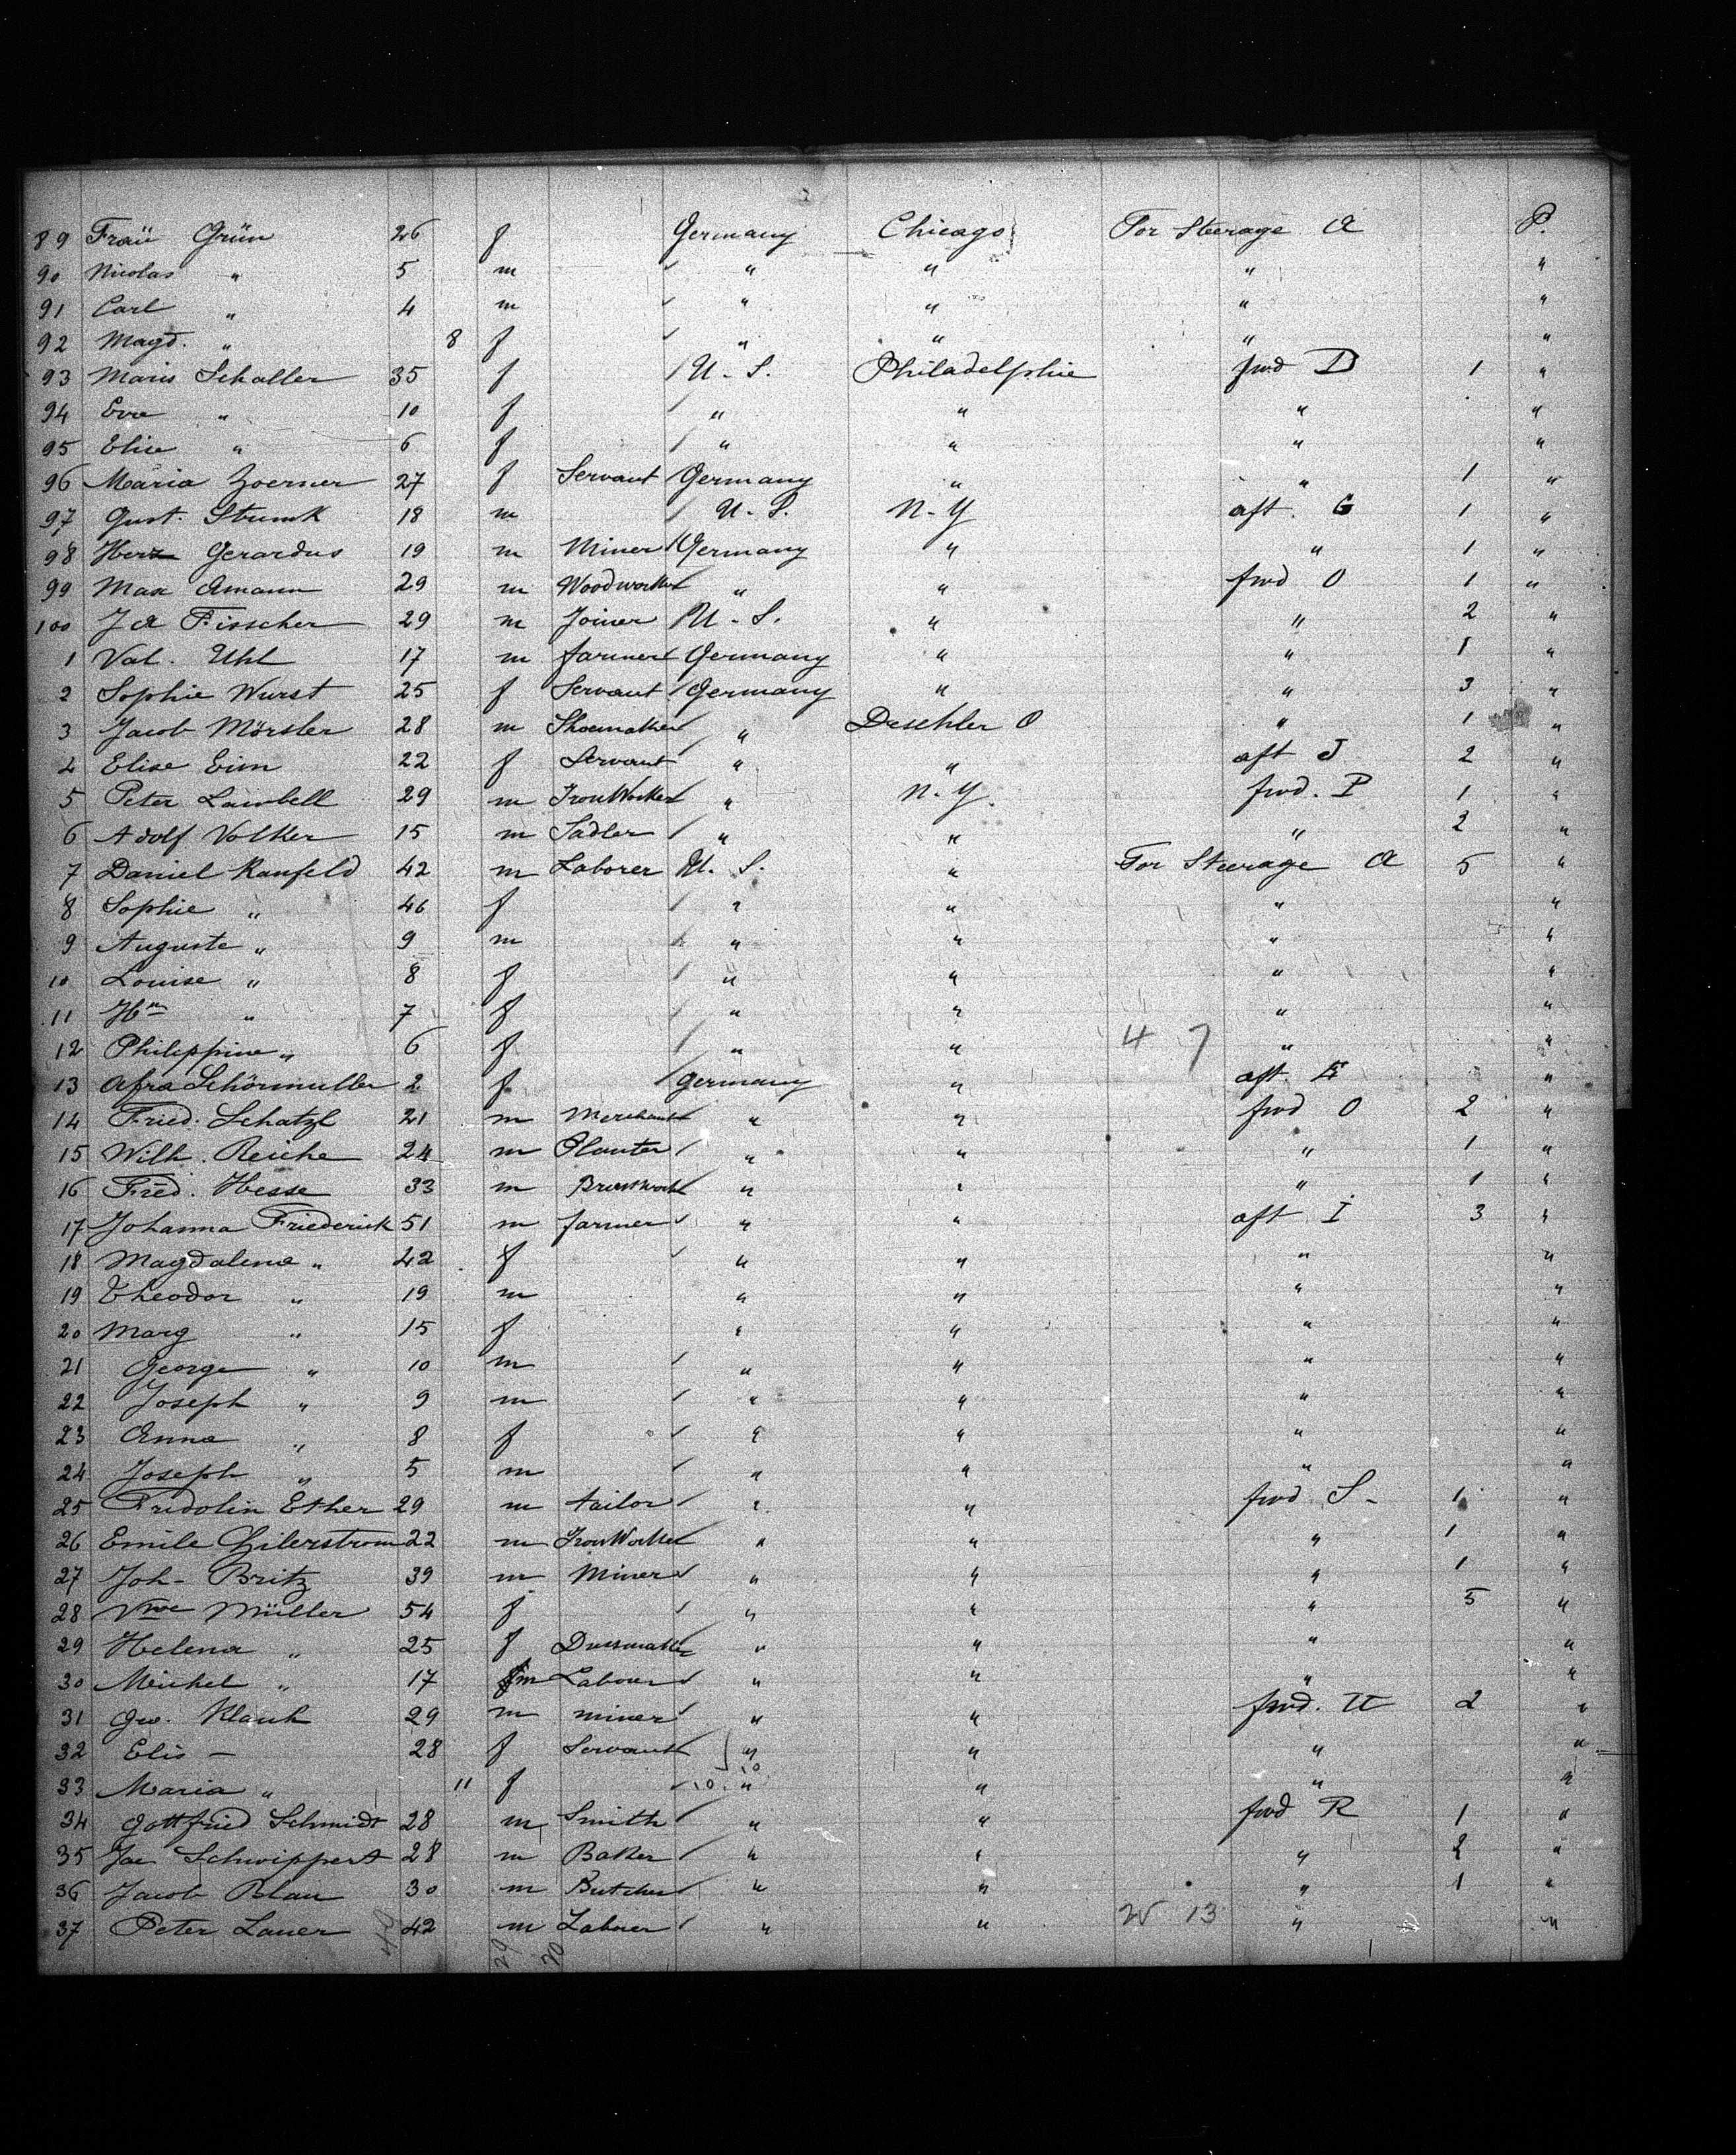 89 Fraü Grün 26 f Germany Chicago For Steerage A P.
90 Nicolas " 5 m " " " "
91 Carl " 4 m " " " "
92 Magd. " 8 f " " " "
93 Maris Schaller 35 f U.S. Philadelphie fwd D 1 "
94 Eva " 10 f " " " "
95 Elise " 6 f " " " "
96 Maria Zoerner 27 f Servant Germany " " 1 "
97 Gust. Strunk 18 m U.S. N-Y aft. G 1 "
98 Herz Gerardus 19 m Miner Germany " " 1 "
99 Max Amann 29 m Woodworker " " fwd O 1 "
100 J A Fisscher 29 m Joiner U-S. " " 2 "
1 Val. Uhl 17 m farmer Germany " " 1 "
2 Sophie Wurst 25 f Servant Germany " " 3 "
3 Jacob Mörsler 28 m Shoemaker " Deschler O " 1 "
4 Elise Eim 22 f Servant " " aft J 2 "
5 Peter Lambell 29 m IronWorker " N.Y. fwd. P 1 "
6 Adolf Volker 15 m Sadler " " " 2 "
7 Daniel Ranfeld 42 m Laborer U.S. " For Steerage A 5 "
8 Sophie " 46 f " " " "
9 Auguste " 9 m " " " "
10 Louise " 8 f " " " "
11 Hn " 7 f " " " "
12 Philippine " 6 f " " 4 7 " "
13 Afra Schörmuller 2 f Germany " aft. "
14 Fried. Schatzl 21 m Merchant " " fwd O 2 "
15 Wilh. Reiche 24 m Planter " " " 1 "
16 Fred. Hesse 33 m " " " 1 "
17 Johanna Friederick 51 m farmer " " aft I 3 "
18 Magdalena " 42 f " " " "
19 Theodor " 19 m " " " "
20 Marg " 15 f " " " "
21 George " 10 m " " " "
22 Joseph " 9 m " " " "
23 Anna " 8 f " " " "
24 Joseph " 5 m " " " "
25 Fridolin Ether 29 m tailor " " fwd S- 1 "
26 Emile 22 m IronWorker " " " 1 "
27 Joh- Britz 39 m Miner " " " 1 "
28 Vwe Müller 54 f " " " 5 "
29 Helena " 25 f Dressmaker " " " "
30 Michel " 17 m Labourer " " " "
31 Geo. Klauk 29 m miner " " fwd. U 2 "
32 Elis - 28 f Servant " " " "
33 Maria " 11 f 10. " " " "
34 Gottfried Schmidt 28 m Smith " " fwd R 1 "
35 Jac Schwippert 28 m Baker " " " 2 "
36 Jacob Blau 30 m Butcher " " " 1 "
37 Peter Lauer 42 m Labourer " " 13 " "
29 20